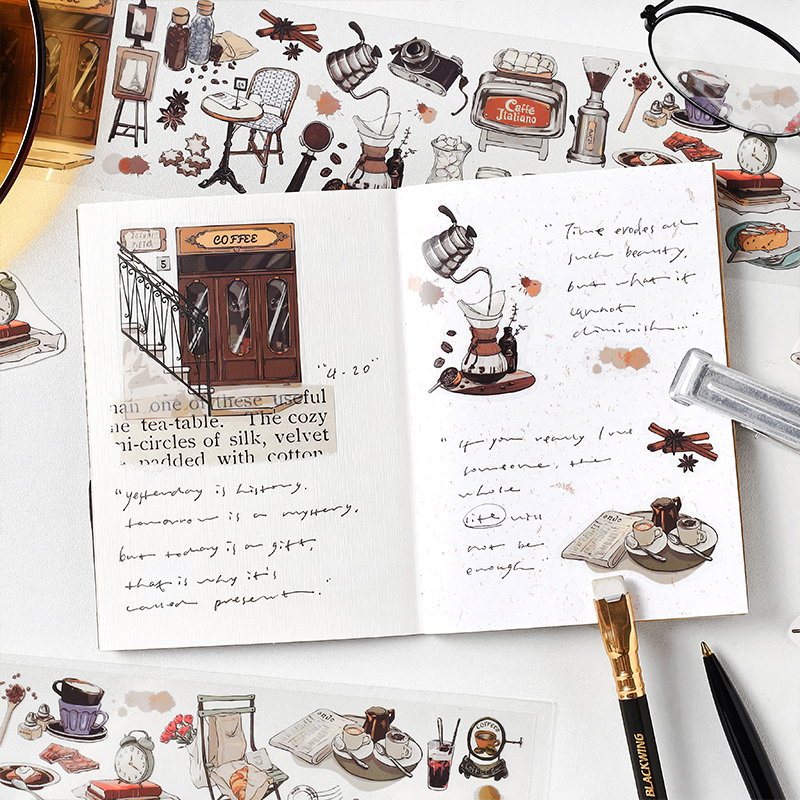 Caffè
Italiano
"Time erodes all
such beauty,
but what it
cannot
diminish..."
COFFEE
5
"4-20"
man one of these useful
he tea-table. The cozy
mi-circles of silk, velvet
padded with cotton
"yesterday is history.
tomorrow is a mystery.
but today is a gift,
that is why it's
called present."
"if you really love
someone, the
whole
life will
not be
enough"
COFFEE
BLACKWING